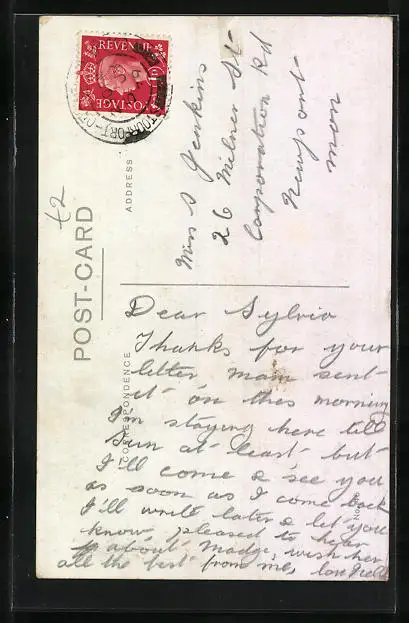 REVENUE
POSTAGE
STOURPORT-ON-
£2
POST-CARD
ADDRESS
CORRESPONDENCE
Miss S Jenkins
26 Milner St
Corporation Rd
Newport
mon
Dear Sylvia
Thanks for your
letter mam sent
it on this morning
I'm staying here till
Sun at least but
I'll come & see you
as soon as I come back
I'll write later & let you
know, pleased to hear
about Madge, wish her
all the best from me, love Nell